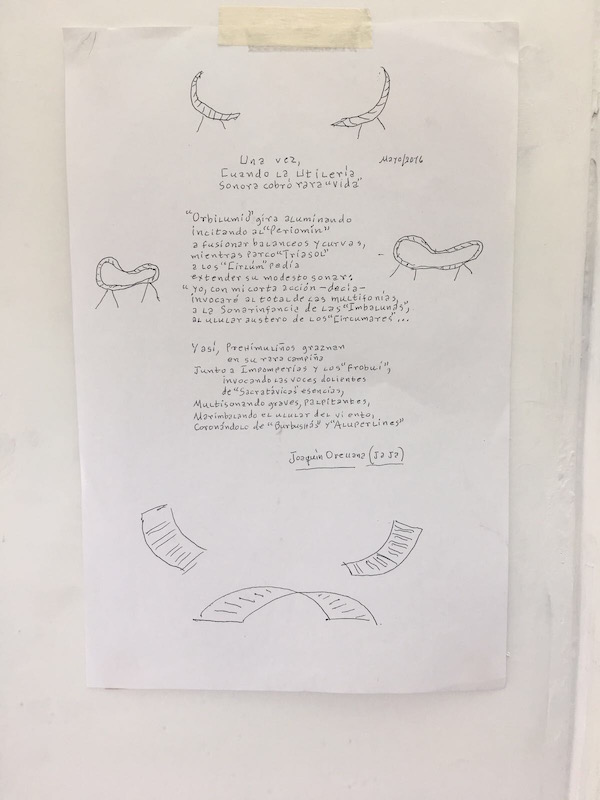 Una vez,
Mayo/2016
Cuando la Utilería
Sonora cobró rara "vida"
"Orbilumio" gira aluminando
incitando al "Periomin"
a fusionar balanceos y curvas,
mientras parco "Triasol"
a los "Cirlúm" pedía
extender su modesto sonar:
"yo, con mi corta acción -decía-
invocaré al total de las multifonías,
a la Sonarinfancia de las "Imbalunas",
al ulular austero de los "Circumares"...
Y así, Prehimuliños graznan
en su rara campiña
Junto a Impomperias y los "Frobui",
invocando las voces dolientes
de "Sacratávicas" esencias,
Multisonando graves, palpitantes,
Marimbalando el ulular del viento,
Coronándolo de y "Aluperlines"
Joaquín Orellana (Ja Ja)